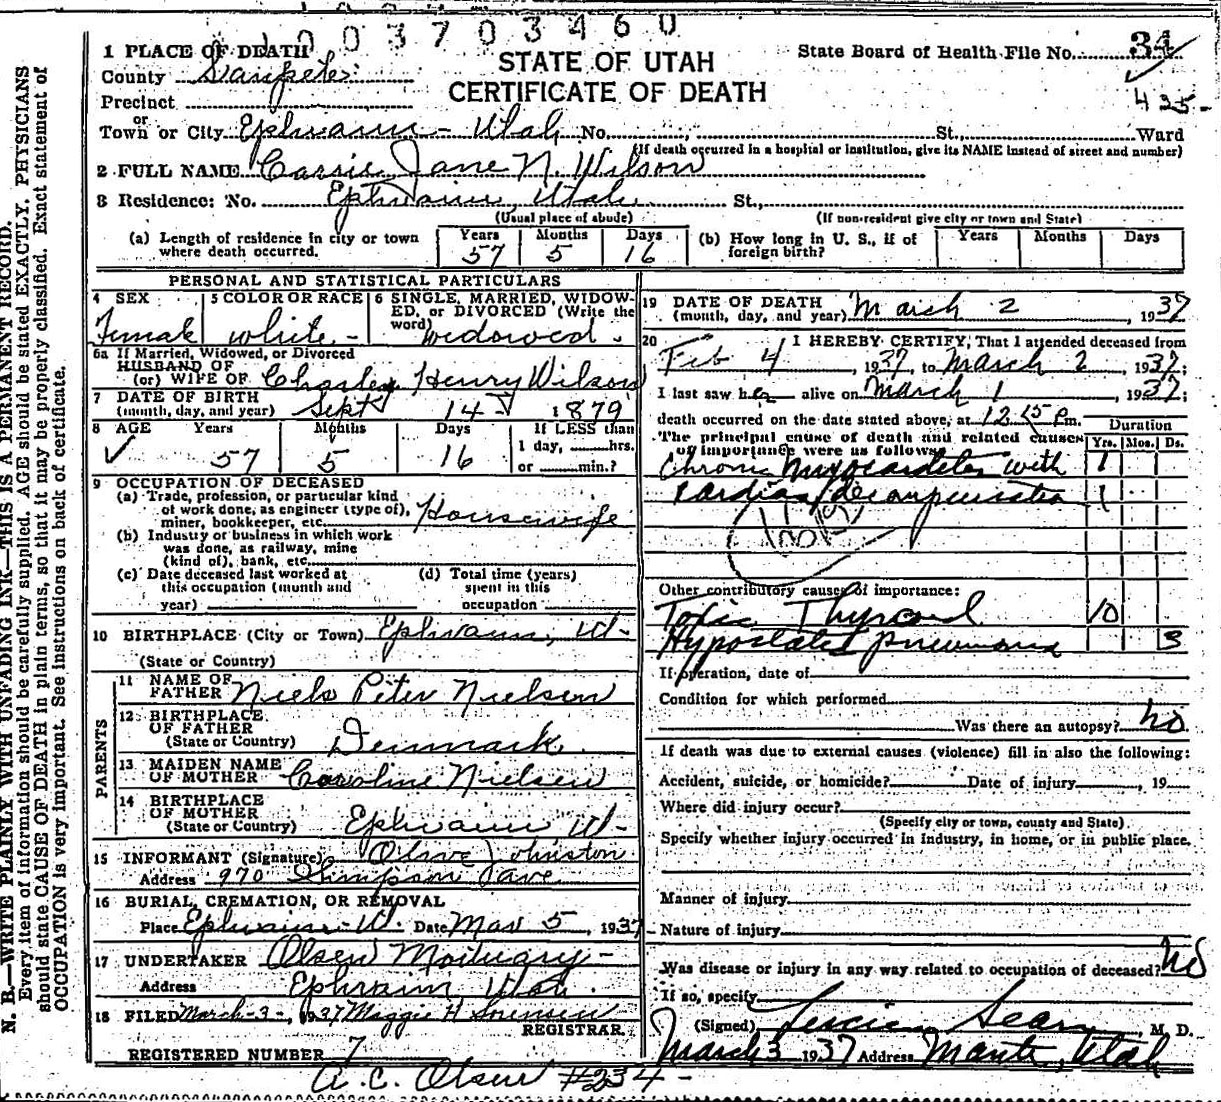 1003703460
1 PLACE OF DEATH
STATE OF UTAH
CERTIFICATE OF DEATH
State Board of Health File No. 34
435-
County Sanpete
Precinct
or
Town or City Ephraim - Utah No. St. Ward
(If death occurred in a hospital or institution, give its NAME instead of street and number)
2 FULL NAME Cassie Jane N. Wilson
3 Residence: No. Ephraim, Utah St.,
(Usual place of abode) (If non-resident give city or town and State)
(a) Length of residence in city or town where death occurred. Years 57 Months 5 Days 16
(b) How long in U. S., if of foreign birth? Years Months Days
PERSONAL AND STATISTICAL PARTICULARS
4 SEX Female
5 COLOR OR RACE white -
6 SINGLE, MARRIED, WIDOWED, or DIVORCED (Write the word) widowed.
6a If Married, Widowed, or Divorced
HUSBAND OF
(or) WIFE OF Charles Henry Wilson
7 DATE OF BIRTH
(month, day, and year) Sept 14 1879
8 AGE Years 57 Months 5 Days 16 If LESS than 1 day, hrs. or min.?
9 OCCUPATION OF DECEASED
(a) Trade, profession, or particular kind of work done, as engineer (type of), miner, bookkeeper, etc. Housewife
(b) Industry or business in which work was done, as railway, mine (kind of), bank, etc.
(c) Date deceased last worked at this occupation (month and year)
(d) Total time (years) spent in this occupation
10 BIRTHPLACE (City or Town) Ephraim, Ut-
(State or Country)
PARENTS
11 NAME OF FATHER Niels Peter Nielson
12 BIRTHPLACE OF FATHER
(State or Country) Denmark.
13 MAIDEN NAME OF MOTHER Caroline Nielsen
14 BIRTHPLACE OF MOTHER
(State or Country) Ephraim Ut-
15 INFORMANT (Signature) Olive Johnston
Address 970 Simpson Ave
16 BURIAL, CREMATION, OR REMOVAL
Place Ephraim - Ut. Date Mar 5, 1937
17 UNDERTAKER Olsen Mortuary -
Address Ephraim, Utah.
18 FILED March-3-, 1937 Maggie H Sorensen
REGISTRAR.
REGISTERED NUMBER 7
A. C. Olsen #234 -
19 DATE OF DEATH
(month, day, and year) March 2, 1937
20 I HEREBY CERTIFY, That I attended deceased from
Feb 4, 1937, to March 2, 1937;
I last saw her alive on March 1, 1937;
death occurred on the date stated above, at 12.15 Pm.
The principal cause of death and related causes of importance were as follows: Duration Yrs. Mos. Ds.
Chronic Myocarditis with 1
cardiac decompensation 1
Other contributory causes of importance:
Toxic Thyroid 10
Hypostatic pneumonia 3
If operation, date of
Condition for which performed
Was there an autopsy? no
If death was due to external causes (violence) fill in also the following:
Accident, suicide, or homicide? Date of injury , 19
Where did injury occur?
(Specify city or town, county and State)
Specify whether injury occurred in industry, in home, or in public place.
Manner of injury
Nature of injury
Was disease or injury in any way related to occupation of deceased? no
If so, specify
(Signed) Sears, M. D.
March 3 1937 Address Manti, Utah
N. B.—WRITE PLAINLY WITH UNFADING INK—THIS IS A PERMANENT RECORD.
Every item of information should be carefully supplied. AGE should be stated EXACTLY. PHYSICIANS
should state CAUSE OF DEATH in plain terms, so that it may be properly classified. Exact statement of
OCCUPATION is very important. See instructions on back of certificate.